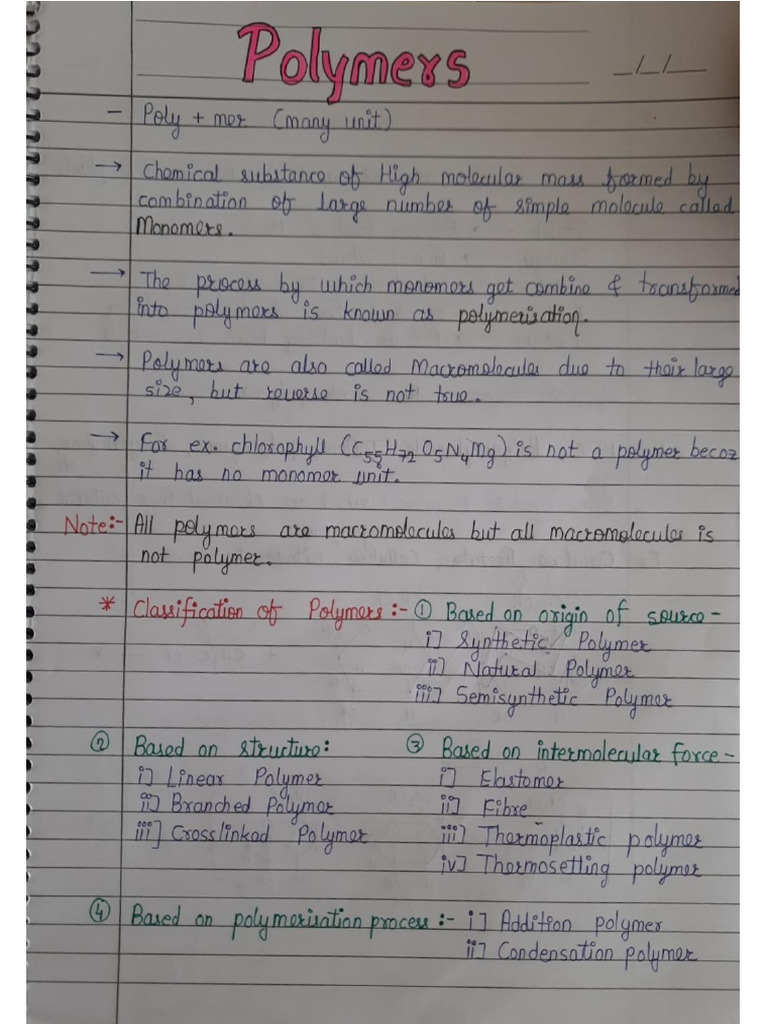 Polymers
_/_/__
- Poly + mer (many unit)
→ Chemical substance of High molecular mass formed by
combination of large number of simple molecule called
Monomers.
→ The process by which monomers get combine & transformed
into polymers is known as polymerisation.
→ Polymers are also called Macromolecules due to their large
size, but reverse is not true.
→ For ex. chlorophyll (C₅₅H₇₂O₅N₄Mg) is not a polymer becoz
it has no monomer unit.
Note:- All polymers are macromolecules but all macromolecules is
not polymer.
* Classification of Polymers :- ① Based on origin of source -
i] Synthetic Polymer
ii] Natural Polymer
iii] Semisynthetic Polymer
② Based on structure:
i] Linear Polymer
ii] Branched Polymer
iii] Crosslinked Polymer
③ Based on intermolecular force -
i] Elastomer
ii] Fibre
iii] Thermoplastic polymer
iv] Thermosetting polymer
④ Based on polymerisation process :- i] Addition polymer
ii] Condensation polymer